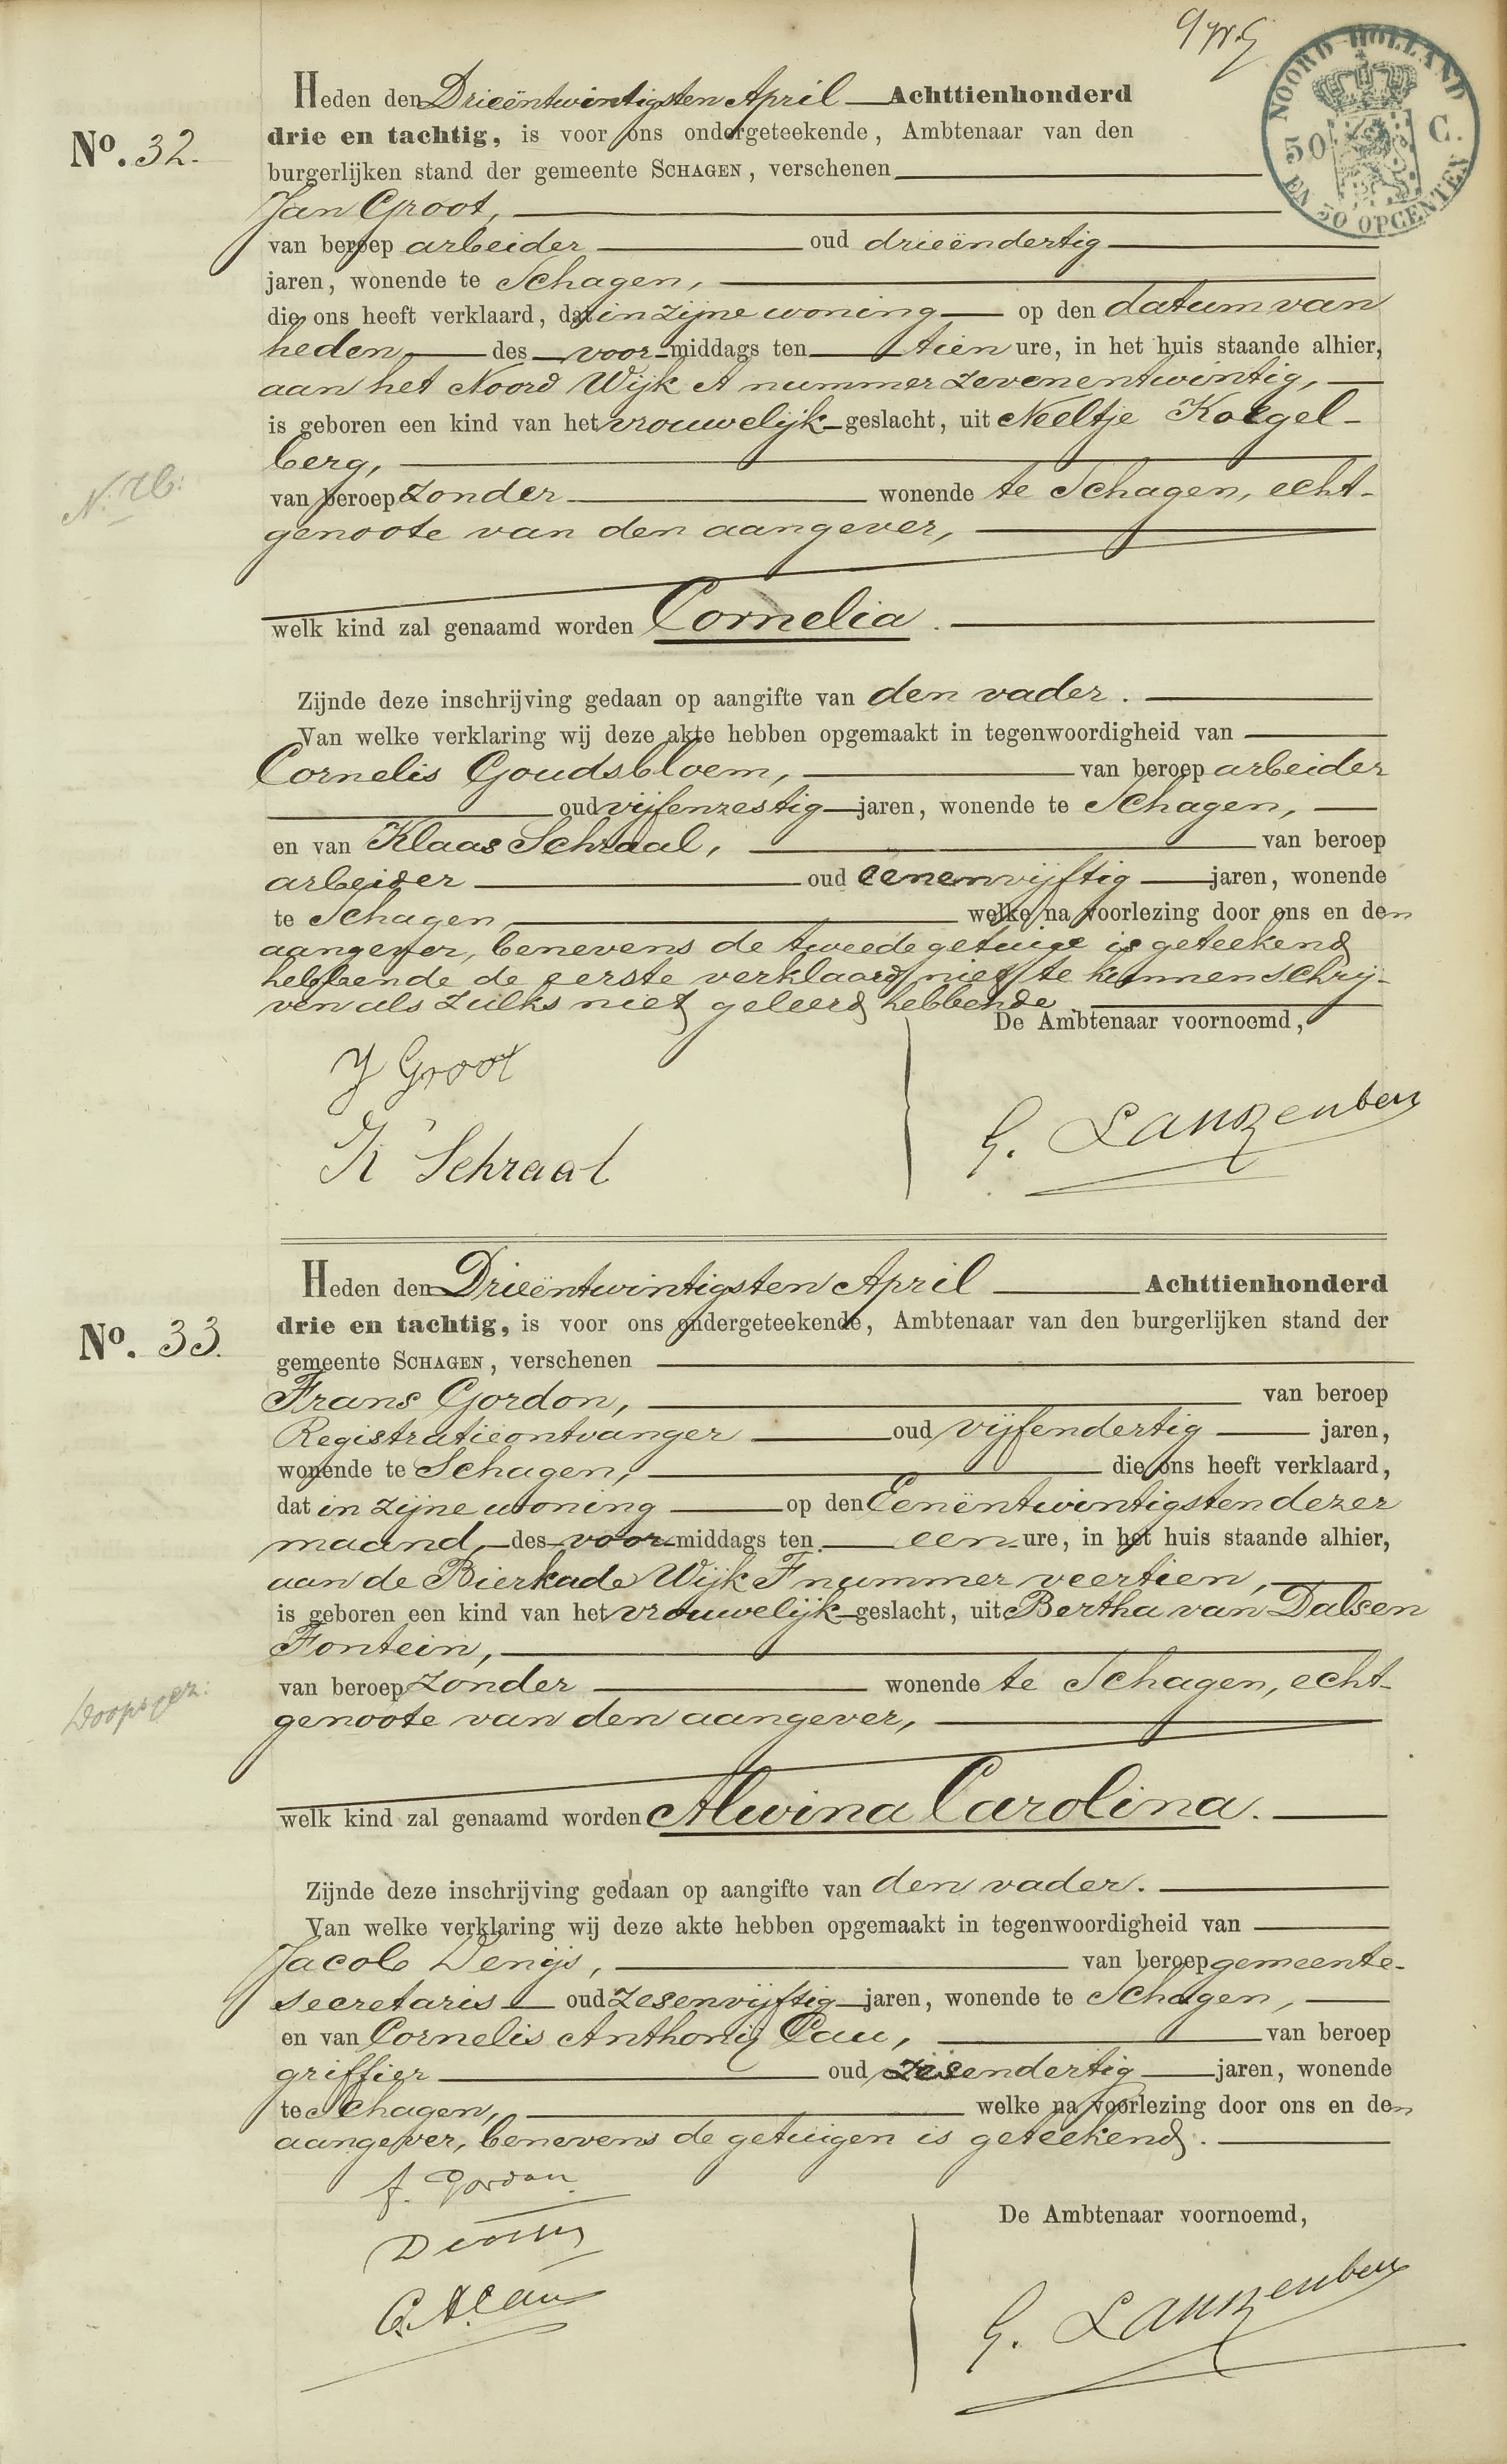 NOORD-HOLLAND
50 C.
EN 50 OPCENTEN
No. 32.
Heden den Drieëntwintigsten April Achttienhonderd
drie en tachtig, is voor ons ondergeteekende, Ambtenaar van den
burgerlijken stand der gemeente SCHAGEN, verschenen
Jan Groot,
van beroep arbeider oud drieëndertig
jaren, wonende te Schagen,
die ons heeft verklaard, dat in zijne woning op den datum van
heden, des voor middags ten tien ure, in het huis staande alhier,
aan het Noord Wijk A nummer zevenentwintig,
is geboren een kind van het vrouwelijk geslacht, uit Neeltje Koegel-
berg,
N. Hb:
van beroep zonder wonende te Schagen, echt-
genoote van den aangever,
welk kind zal genaamd worden Cornelia.
Zijnde deze inschrijving gedaan op aangifte van den vader.
Van welke verklaring wij deze akte hebben opgemaakt in tegenwoordigheid van
Cornelis Goudsbloem, van beroep arbeider
oud vijfenzestig jaren, wonende te Schagen,
en van Klaas Schraal, van beroep
arbeider oud eenenvijftig jaren, wonende
te Schagen, welke na voorlezing door ons en den
aangever, benevens de tweede getuige is geteekend
hebbende de eerste verklaard niet te kunnen schrij-
ven als zulks niet geleerd hebbende.
De Ambtenaar voornoemd,
J Groot
K Schraal
G. Langenberg
No. 33.
Heden den Drieëntwintigsten April Achttienhonderd
drie en tachtig, is voor ons ondergeteekende, Ambtenaar van den burgerlijken stand der
gemeente SCHAGEN, verschenen
Frans Gordon, van beroep
Registratieontvanger oud vijfendertig jaren,
wonende te Schagen, die ons heeft verklaard,
dat in zijne woning op den Eenëntwintigsten dezer
maand, des voor middags ten een ure, in het huis staande alhier,
aan de Bierkade Wijk F nummer veertien,
is geboren een kind van het vrouwelijk geslacht, uit Bertha van Dalsen
Fontein,
Doopsgez:
van beroep zonder wonende te Schagen, echt-
genoote van den aangever,
welk kind zal genaamd worden Alwina Carolina.
Zijnde deze inschrijving gedaan op aangifte van den vader.
Van welke verklaring wij deze akte hebben opgemaakt in tegenwoordigheid van
Jacob Denijs, van beroep gemeente-
secretaris oud zesenvijftig jaren, wonende te Schagen,
en van Cornelis Anthonij Cau, van beroep
griffier oud zesendertig jaren, wonende
te Schagen, welke na voorlezing door ons en den
aangever, benevens de getuigen is geteekend.
F. Gordon
Denijs
C.A. Cau
De Ambtenaar voornoemd,
G. Langenberg